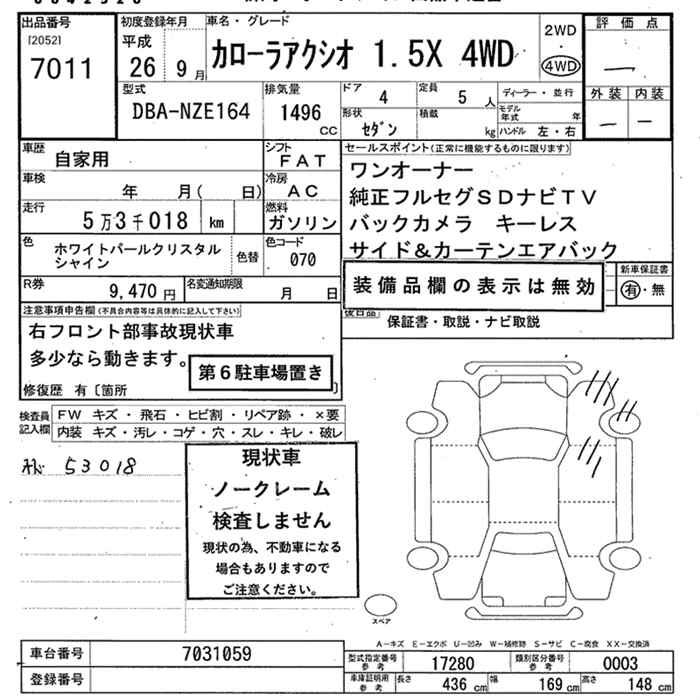 出品番号
[2052]
7011
初度登録年月
平成
26 9月
車名・グレード
カローラアクシオ 1.5X 4WD
2WD
・
4WD
評価点
―
外装 内装
― ―
型式
DBA-NZE164
排気量
1496
CC
ドア
4
定員
5 人
形状
セダン
積載
kg
ディーラー・並行
モデル年式 年
ハンドル 左・右
車歴
自家用
シフト
FAT
車検
年 月( 日)
冷房
AC
走行
5万3千018 km
燃料
ガソリン
色
ホワイトパールクリスタル
シャイン
色替
色コード
070
R券
9,470 円
名変通知期限
月 日
セールスポイント(正常に機能するものに限ります)
ワンオーナー
純正フルセグSDナビTV
バックカメラ キーレス
サイド&カーテンエアバック
装備品欄の表示は無効
新車保証書
有・無
後日品
保証書・取説・ナビ取説
注意事項申告欄(不具合内容等は具体的に記入して下さい)
右フロント部事故現状車
多少なら動きます。
第6駐車場置き
修復歴 有〔箇所 〕
検査員
記入欄
FW キズ・飛石・ヒビ割・リペア跡・×要
内装 キズ・汚レ・コゲ・穴・スレ・キレ・破レ
53018
現状車
ノークレーム
検査しません
現状の為、不動車になる
場合もありますので
ご注意ください。
スペア
A-キズ E-エクボ U-凹み W-補修跡 S-サビ C-腐食 XX-交換済
車台番号
7031059
登録番号
型式指定番号
参考
17280
類別区分番号
参考
0003
車庫証明用
参考
長さ
436 cm
幅
169 cm
高さ
148 cm